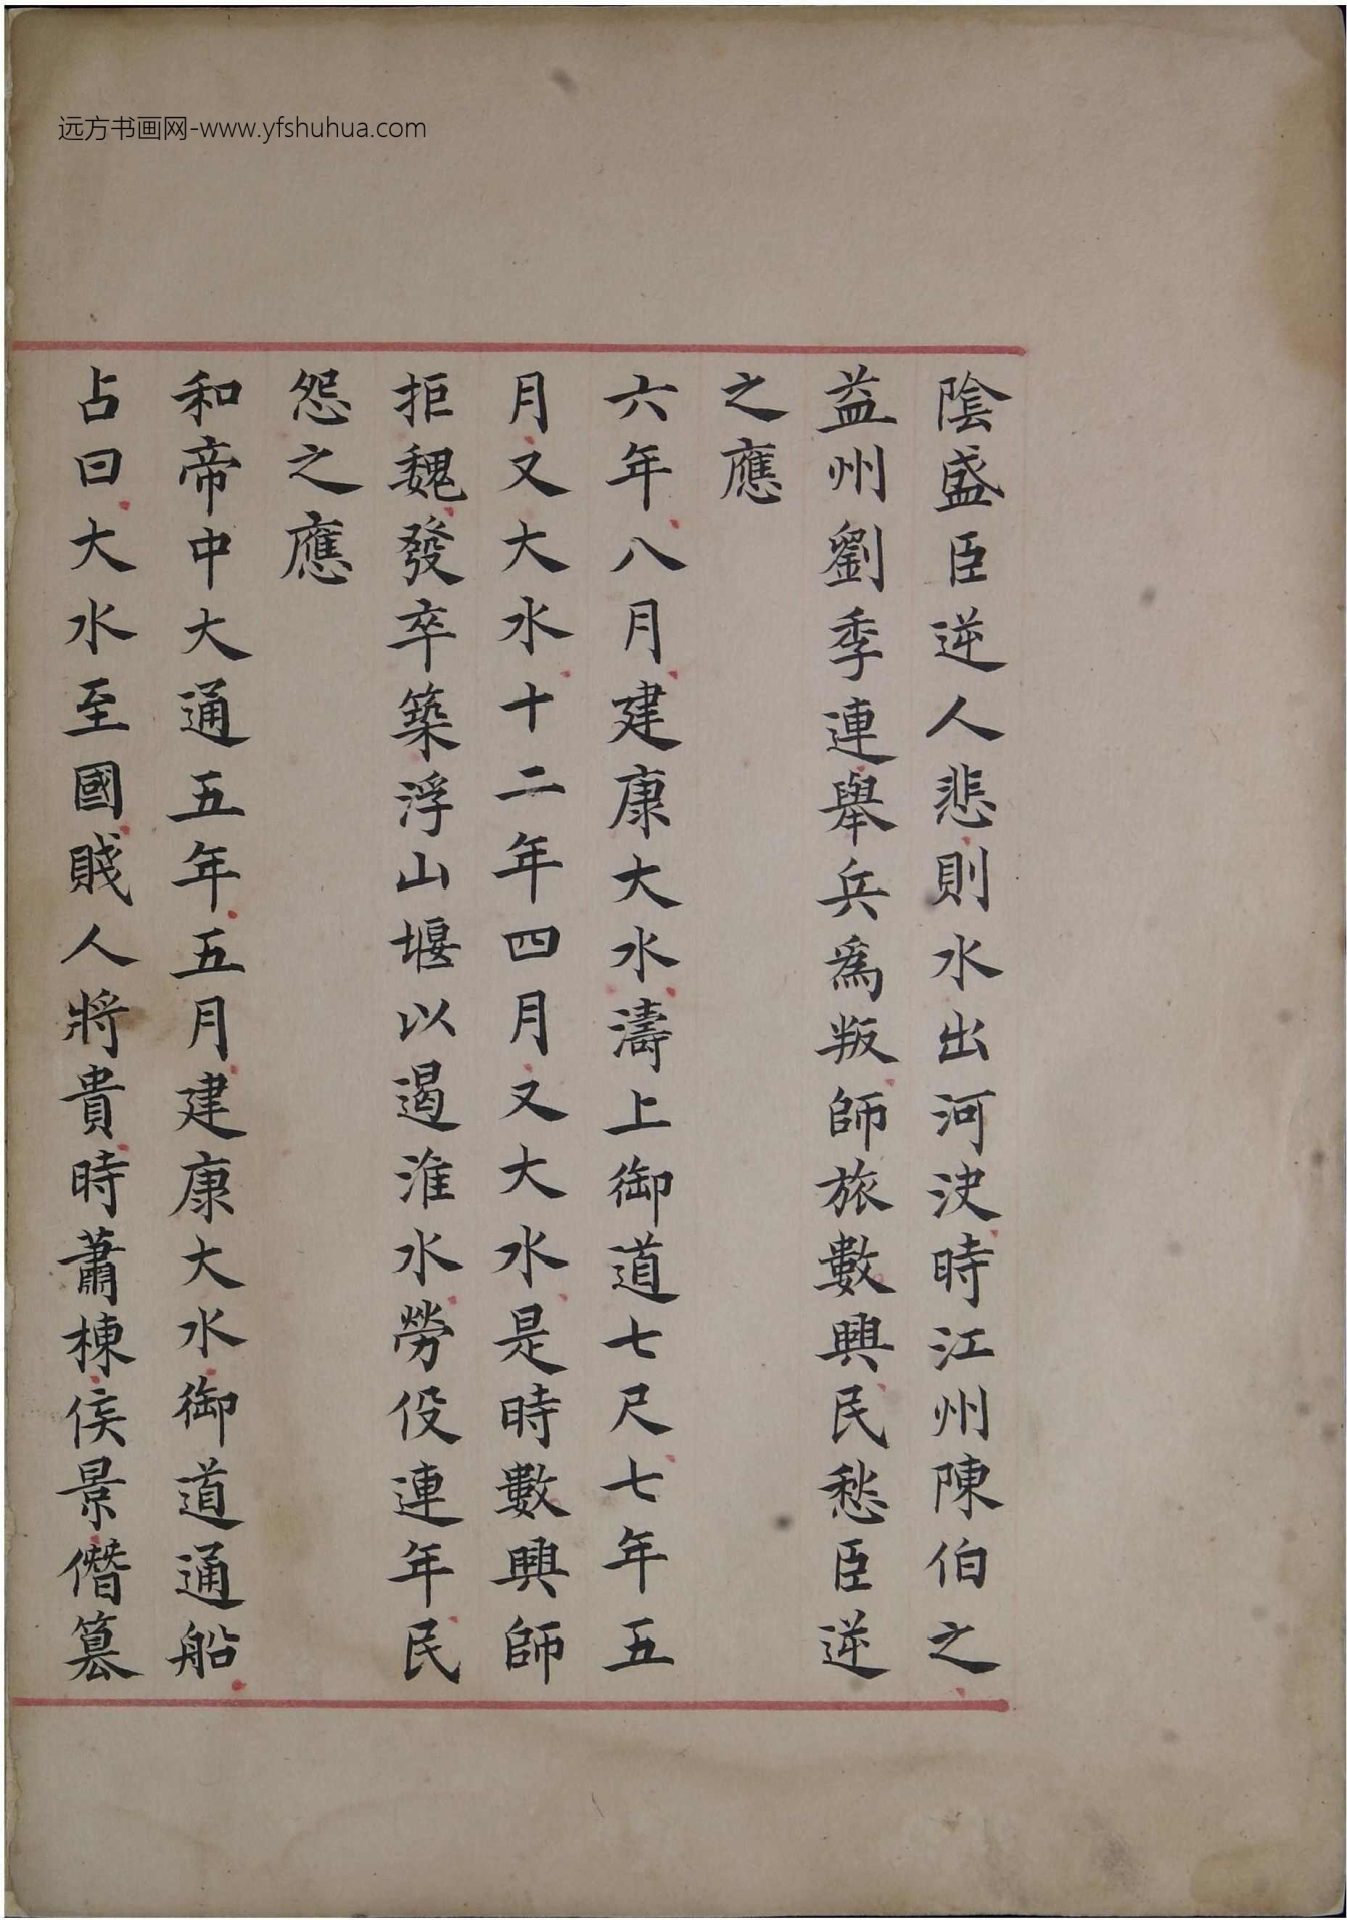 远方书画网-www.yfshuhua.com
陰盛臣逆人悲則水出河決時江州陳伯之
益州劉季連舉兵為叛師旅數興民愁臣逆
之應
六年八月建康大水濤上御道七尺七年五
月又大水十二年四月又大水是時數興師
拒魏發卒築浮山堰以遏淮水勞役連年民
怨之應
和帝中大通五年五月建康大水御道通船
占曰大水至國賤人將貴時蕭棟侯景僭篡